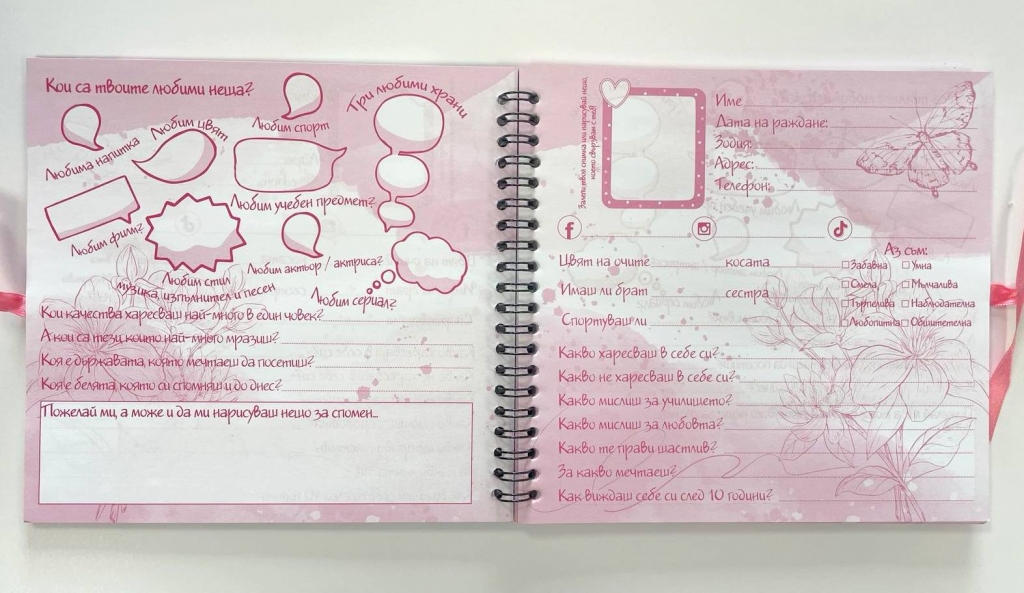 Кои са твоите любими неща?
Любима напитка
Любим цвят
Любим спорт
Три любими храни
Любим филм?
Любим стил
музика, изпълнител и песен
Любим учебен предмет?
Любим актьор / актриса?
Любим сериал?
Кои качества харесваш най-много в един човек?
А кои са тези които най-много мразиш?
Коя е държавата, която мечтаеш да посетиш?
Коя е белята, която си спомняш и до днес?
Пожелай ми, а може и да ми нарисуваш нещо за спомен...
Залепи твоя снимка или нарисувай нещо,
което свързвам с теб!
Име
Дата на раждане:
Зодия:
Адрес:
Телефон:
Цвят на очите косата
Имаш ли брат сестра
Спортуваш ли
Аз съм:
Забавна Умна
Смела Мълчалива
Търпелива Наблюдателна
Любопитна Общителна
Какво харесваш в себе си?
Какво не харесваш в себе си?
Какво мислиш за училището?
Какво мислиш за любовта?
Какво те прави щастлив?
За какво мечтаеш?
Как виждаш себе си след 10 години?